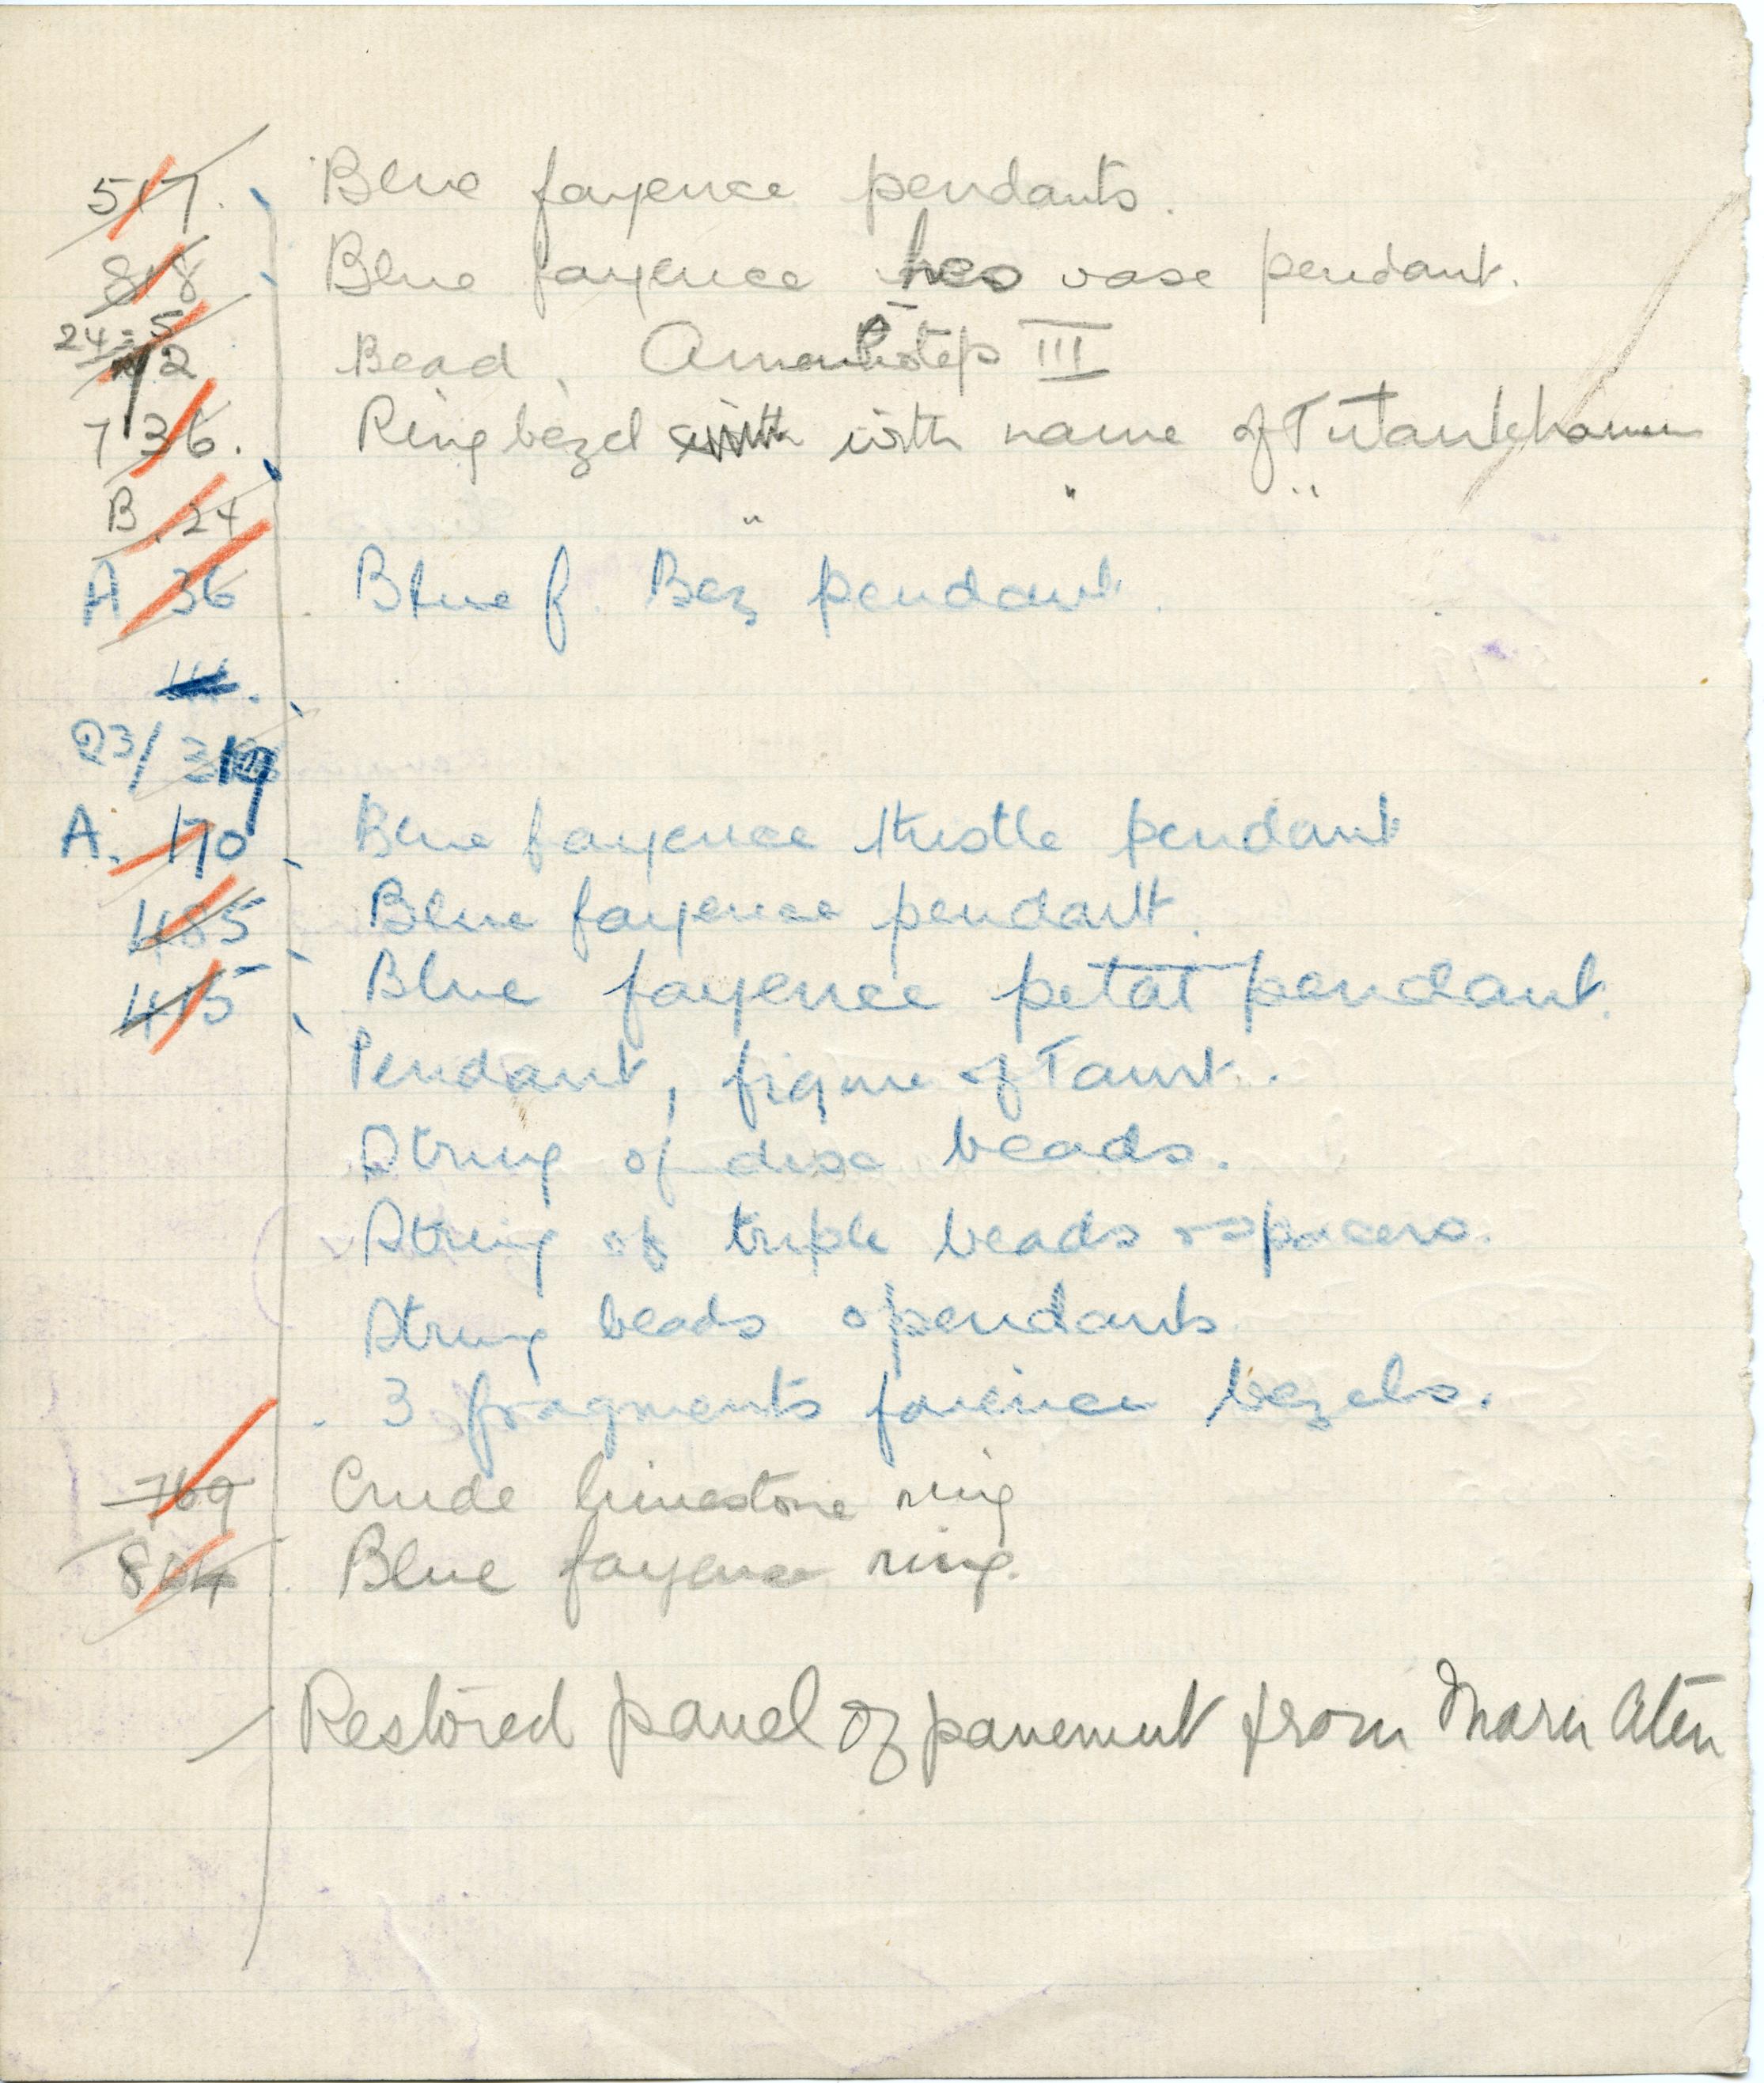 517. Blue fayence pendants.
818 Blue fayence hes vase pendant.
24-5
/2 Bead, Amenhotep III
736. Ring bezel with with name of Tutankhamun
B. 24 " " "
A 36 Blue f. Bez pendant.
23/319
A. 170 Blue fayence thistle pendant
485 Blue fayence pendant.
415 Blue fayence petal pendant.
Pendant, figure of Taurt.
String of disc beads.
String of triple beads spacers.
String beads pendants
3 fragments faience bezels.
769 Crude limestone ring
Blue fayence ring.
Restored panel of pavement from Maru Aten